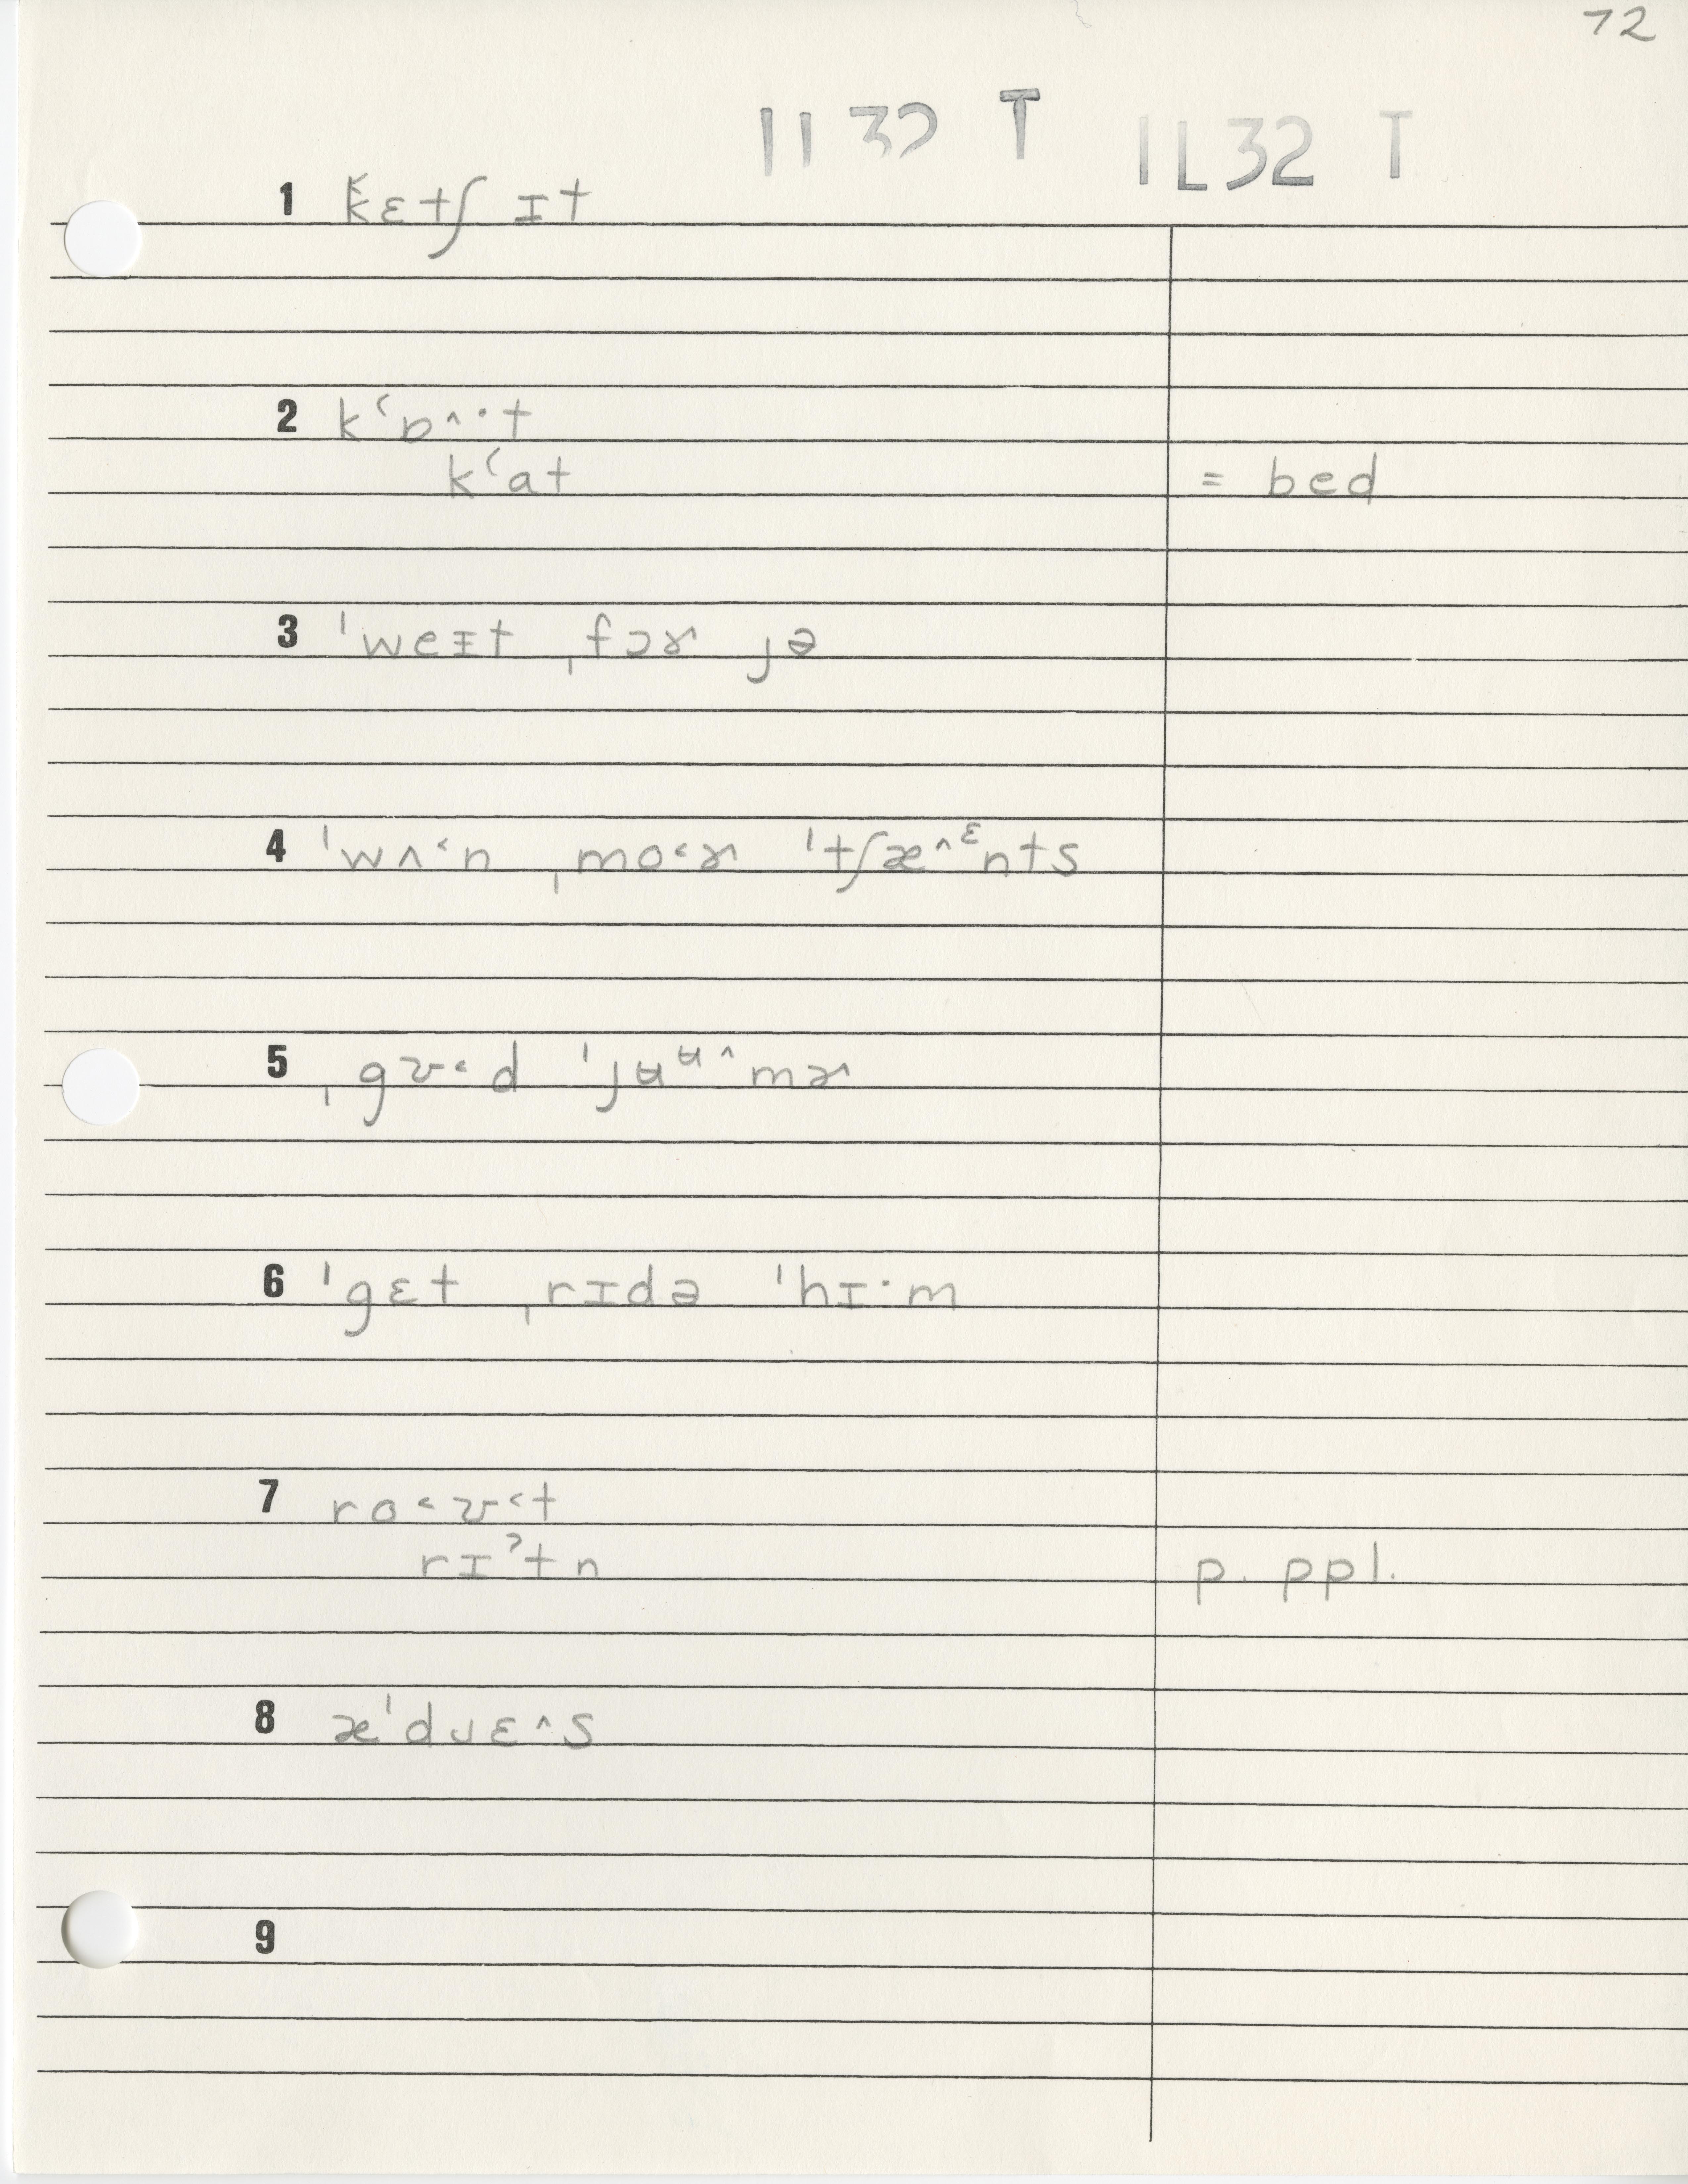 72
11 32 T 1L32 T
1 k̆ɛtʃ ɪt
2 k‘ɒ^·t
k‘at = bed
3 ˈweɪt ˌfɔɚ jə
4 ˈwʌ˂n ˌmo˂ɚ ˈtʃæ^ᵋnts
5 ˌgʊ˂d ˈjʉᶶ^mɚ
6 ˈgɛt ˌrɪdə ˈhɪ·m
7 ro˂ʊ˂t
rɪˀtn p. ppl.
8 æˈdɹɛ^s
9